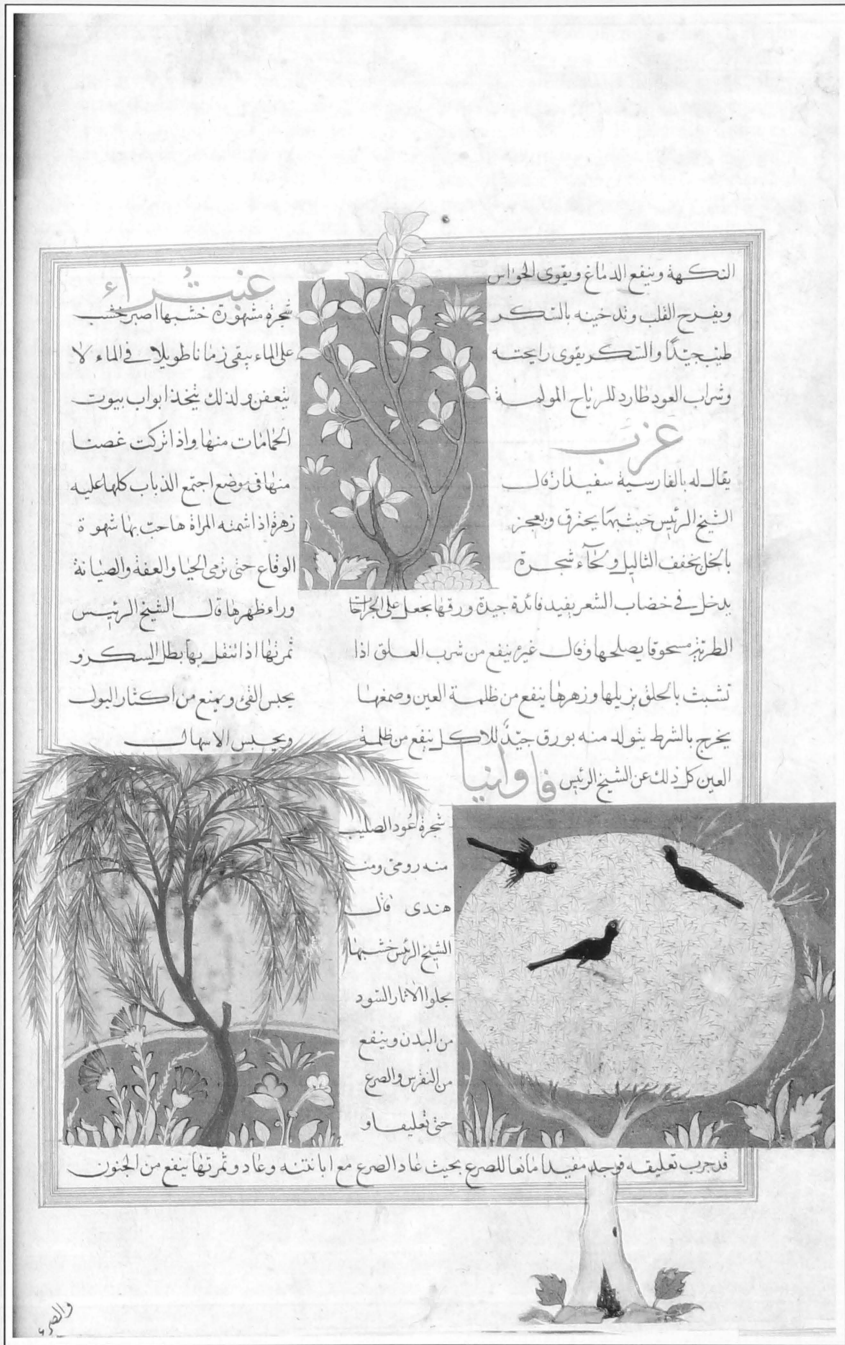 النكهة وينفع الدماغ ويقوى الحواس
ويفرح القلب وتدخينه بالسكر
طيب جيدا والسكر يقوى رايحته
وشراب العود طارد للرياح المولمة
غرب
يقال له بالفارسية سفيدار قال
الشيخ الرئيس خشبها يحترق ويعجن
بالخل يخفف الثاليل ولحاء شجرة
يدخل في خضاب الشعر يفيد فائدة جيدة ورقها يجعل على الجراحات
الطرية مسحوقا يصلحها وقال غيره ينفع من شرب العلق اذا
تشبث بالحلق يزيلها وزهرها ينفع من ظلمة العين وصمغها
يخرج بالشرط يتولد منه بورق جيد للاكل ينفع من ظلمة
العين كل ذلك عن الشيخ الرئيس
غبيراء
شجرة مشهورة خشبها اصبر خشب
على الماء يبقى زمانا طويلا في الماء لا
يتعفن ولذلك يتخذ ابواب بيوت
الحمامات منها واذا تركت غصنا
منها في موضع اجتمع الذباب كلها عليه
زهرة اذا شمته المراة هاجت بها شهوة
الوقاع حتى ترمى الحيا والعفة والصيانة
وراء ظهرها قال الشيخ الرئيس
ثمرتها اذا تنقل بها بطل السكر و
يحبس القى ويمنع من اكثار البول
ويحبس الاسهال
فاوانيا
شجرة عود الصليب
منه رومى ومنه
هندى قال
الشيخ الرئيس خشبها
يجلوا الاثار السود
من البدن وينفع
من النقرس والصرع
حتى تعليقا و
قد جرب تعليقه فوجد مفيدا مانعا للصرع بحيث عاد الصرع مع ابانته وعاد وثمرتها ينفع من الجنون
والصرع